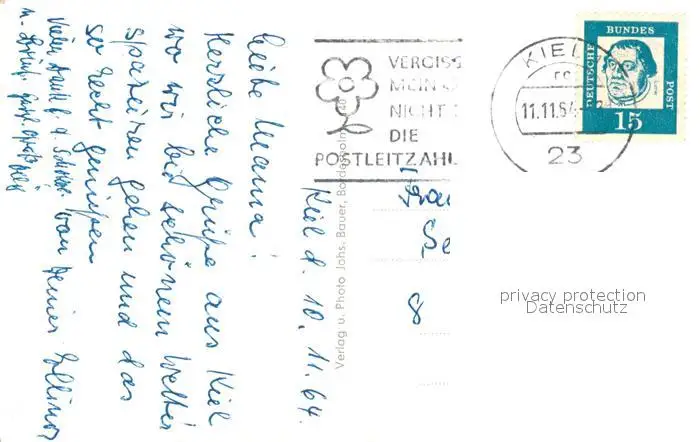 Kiel d. 10.11.64.
Liebe Mama!
Herzliche Grüße aus Kiel
wo wir bei schönem Wetter
spazieren gehen und das
so recht genießen
von Deiner
Vielen Dank f. d.
u.
VERGISS
MEIN
NICHT
DIE
POSTLEITZAHL
KIEL
11.11.64
23
DEUTSCHE
BUNDES
POST
15
Verlag u. Photo Johs. Bauer, Bordesholm
Frau
Se
8
privacy protection
Datenschutz